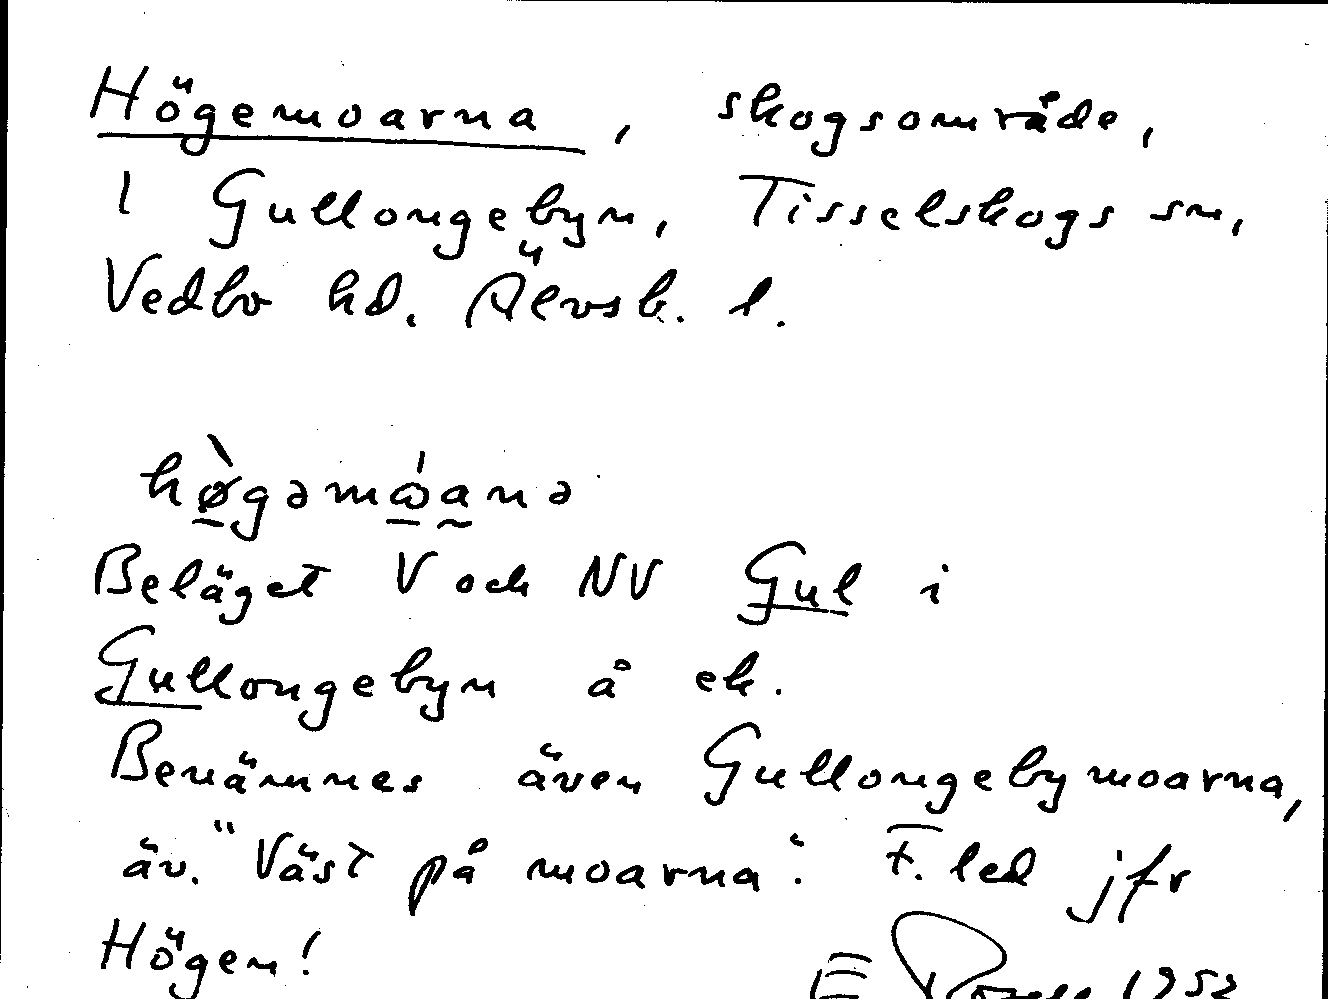 Högemoarna, skogsområde,
i Gullongebyn, Tisselskogs sn,
Vedbo hd. Älvsb. l.
hø̀gəmòanə
Beläget V och NV Gul i
Gullongebyn å ek.
Benämnes även Gullongebymoarna,
äv. "Väst på moarna". F.led jfr
Högen!
E 1952